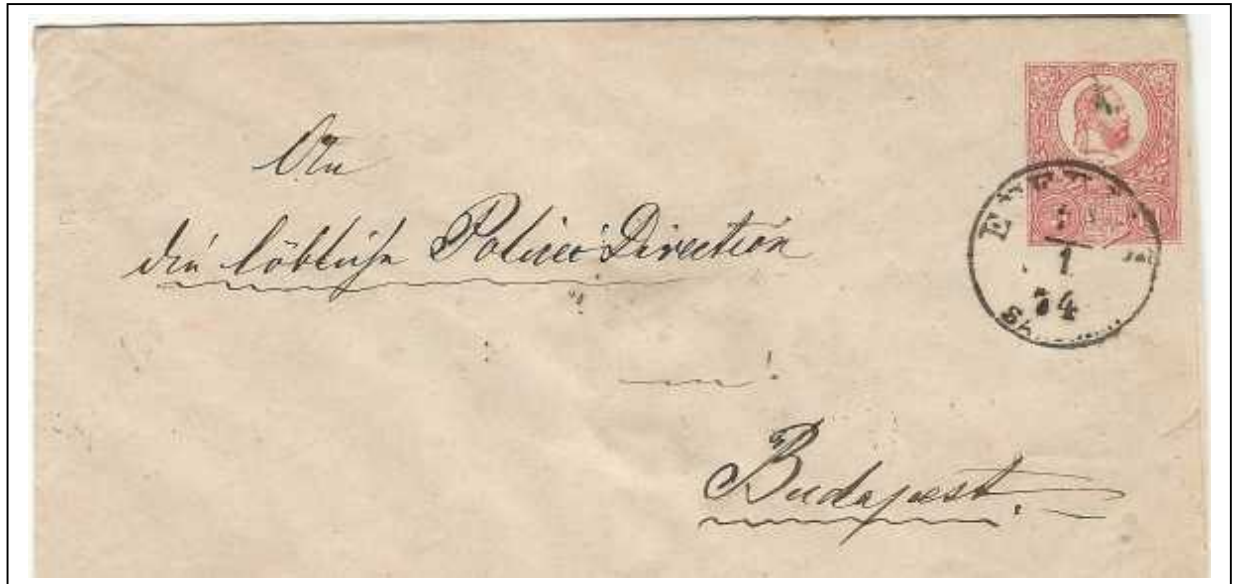 An
die löbliche Policei Direction
in
Budapest.
1
74